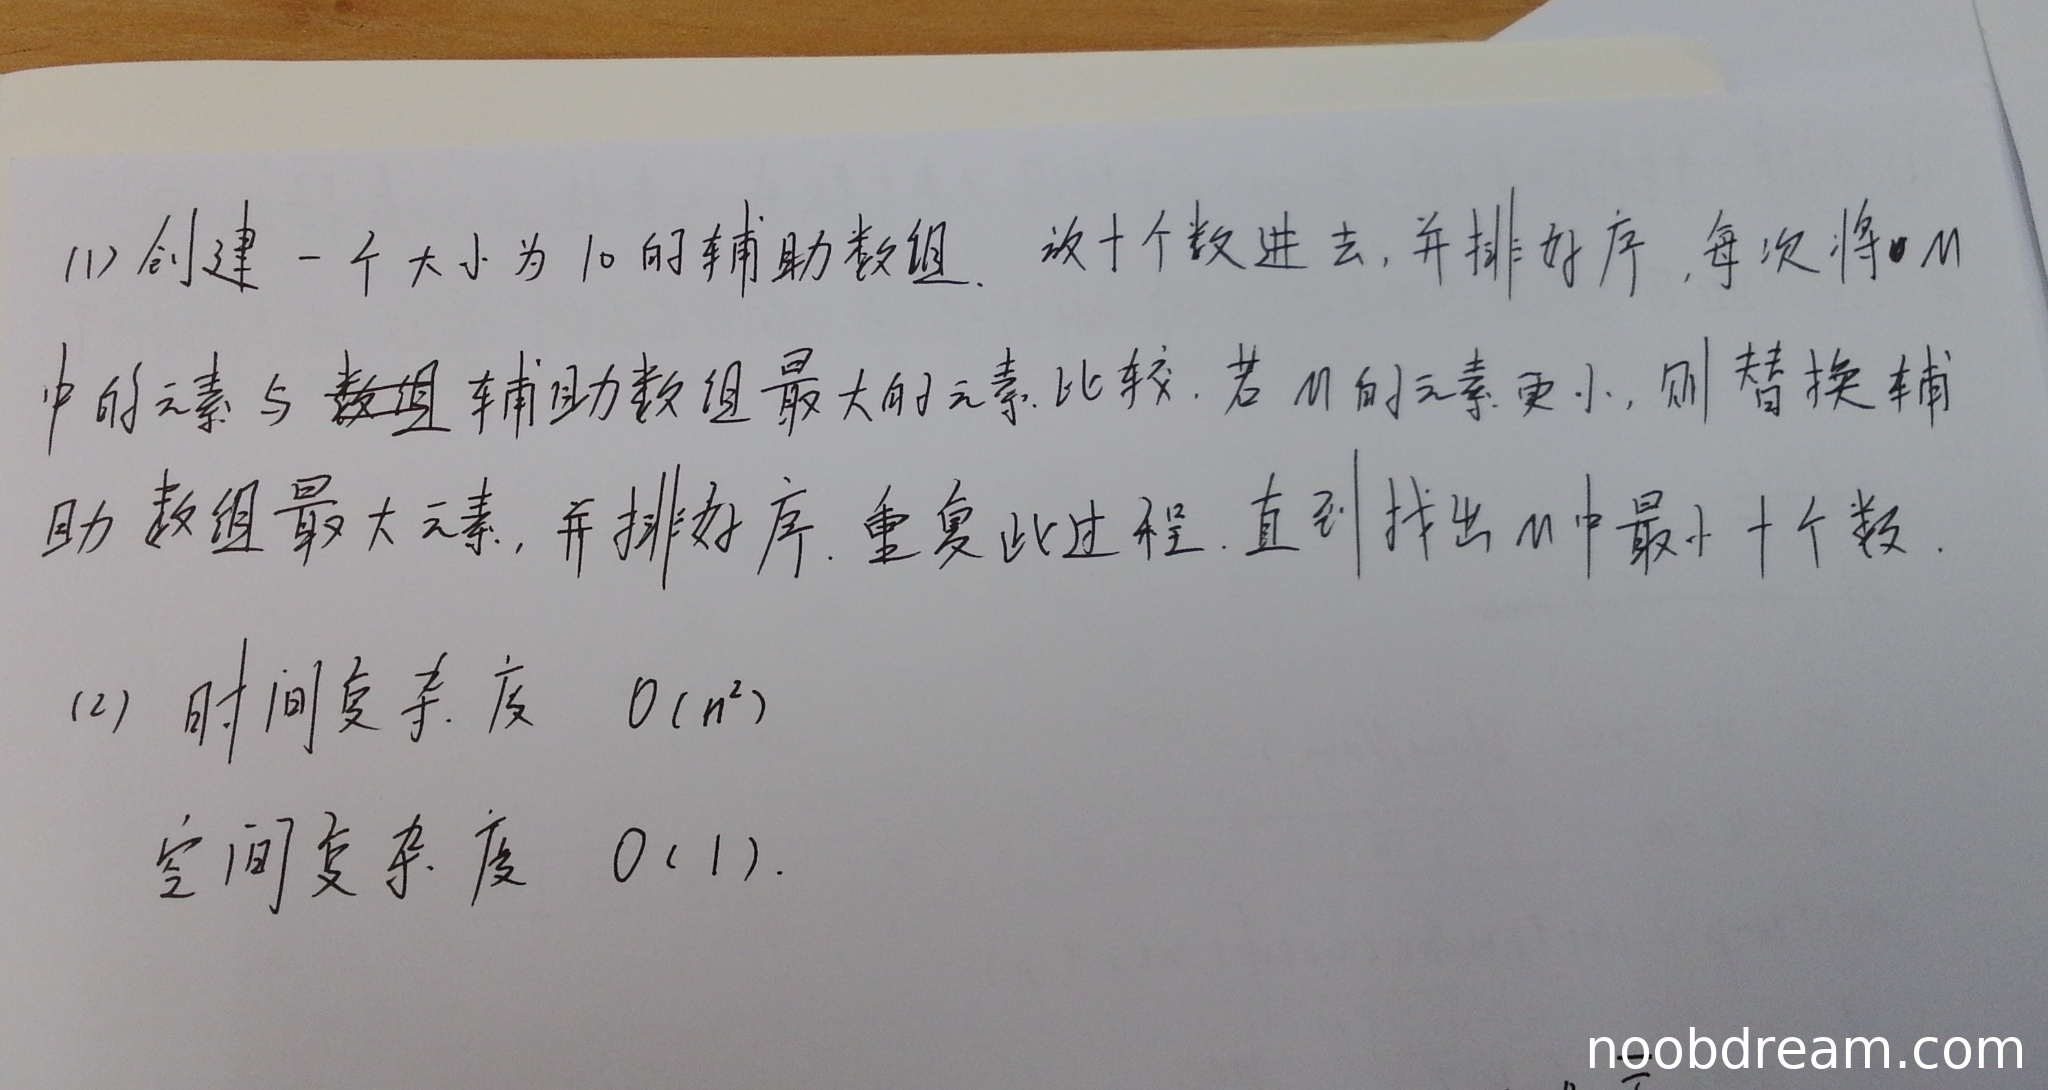 (1) 创建一个大小为10的辅助数组. 放十个数进去,并排好序,每次将M
中的元素与 辅助数组最大的元素比较.若M的元素更小,则替换辅
助数组最大元素,并排好序.重复此过程.直到找出M中最小十个数.
(2) 时间复杂度 O(n²)
空间复杂度 O(1).
noobdream.com